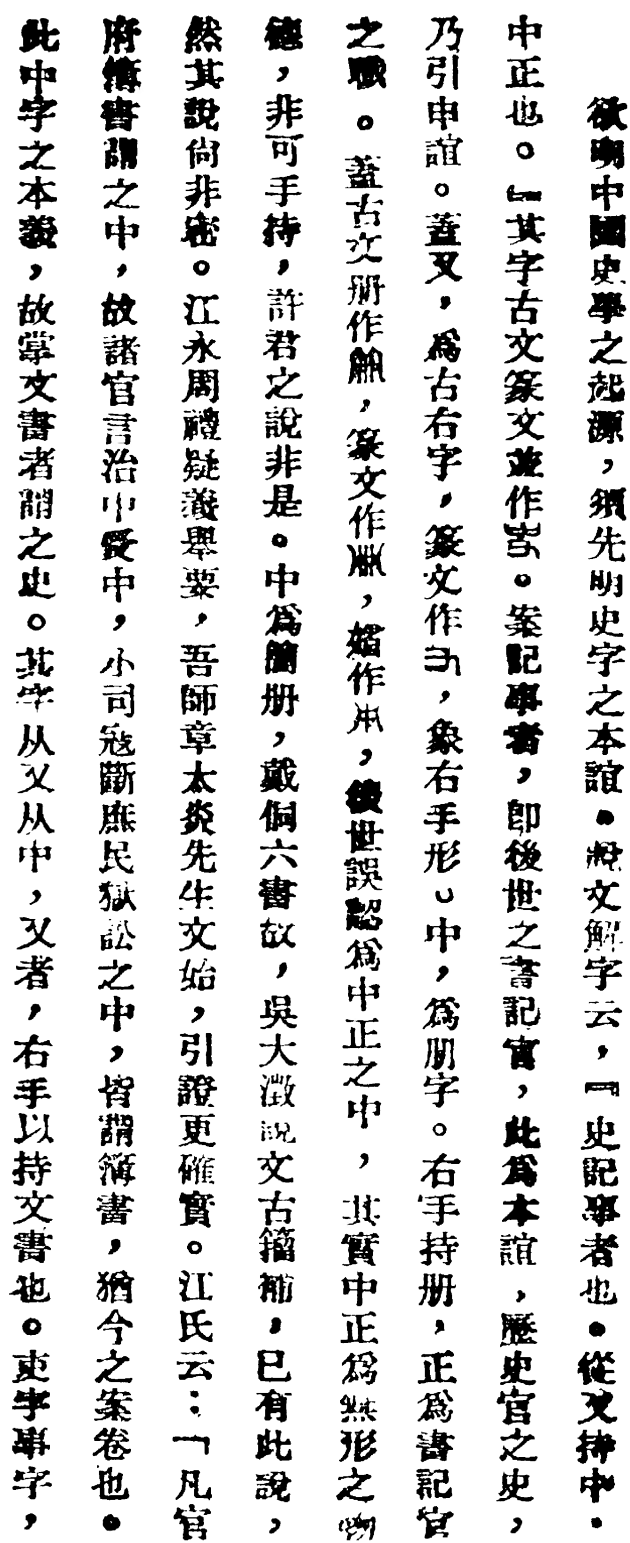 欲明中國史學之起源，須先明史字之本誼。說文解字云，『史記事者也。從又持中。
中正也。』其字古文篆文並作。案記事者，即後世之書記官，此爲本誼，歷史官之史，
乃引申誼。蓋又，爲古右字，篆文作，象右手形。中，爲册字。右手持册，正爲書記官
之職。蓋古文册作，篆文作，省作，後世誤認爲中正之中，其實中正爲無形之物
德，非可手持，許君之說非是。中爲簡册，戴侗六書故，吳大澂說文古籀補，已有此說，
然其說尙非密。江永周禮疑義舉要，吾師章太炎先生文始，引證更確實。江氏云：「凡官
府簿書謂之中，故諸官言治中受中，小司寇斷庶民獄訟之中，皆謂簿書，猶今之案卷也。
此中字之本義，故掌文書者謂之史。其字从又从中，又者，右手以持文書也。吏字事字，